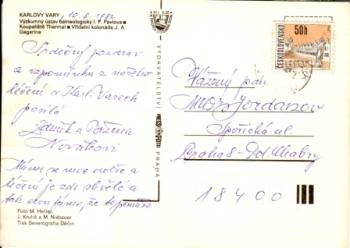 KARLOVY VARY
Výzkumný ústav balneologický I. P. Pavlova ■
Koupaliště Thermal ■ Vřídelní kolonáda J. A.
Gagarina
10. 8. 1982
Srdečný pozdrav
a vzpomínku z našeho
léčení v Karl. Varech
posílá
Zdeněk a Božena
Novákovi
Máme se moc dobře a
léčení je zde skvělé a
tak doufáme, že
Foto M. Heller,
J. Krulik a M. Niebauer
Tisk Severografia Děčín
VYDAVATELSTVÍ
PRAHA
50h
ČESKOSLOVENSKO
Vážený pan
MUDr Jordanov
Spořická ul.
Praha 8 - Dol. Chabry
184 00